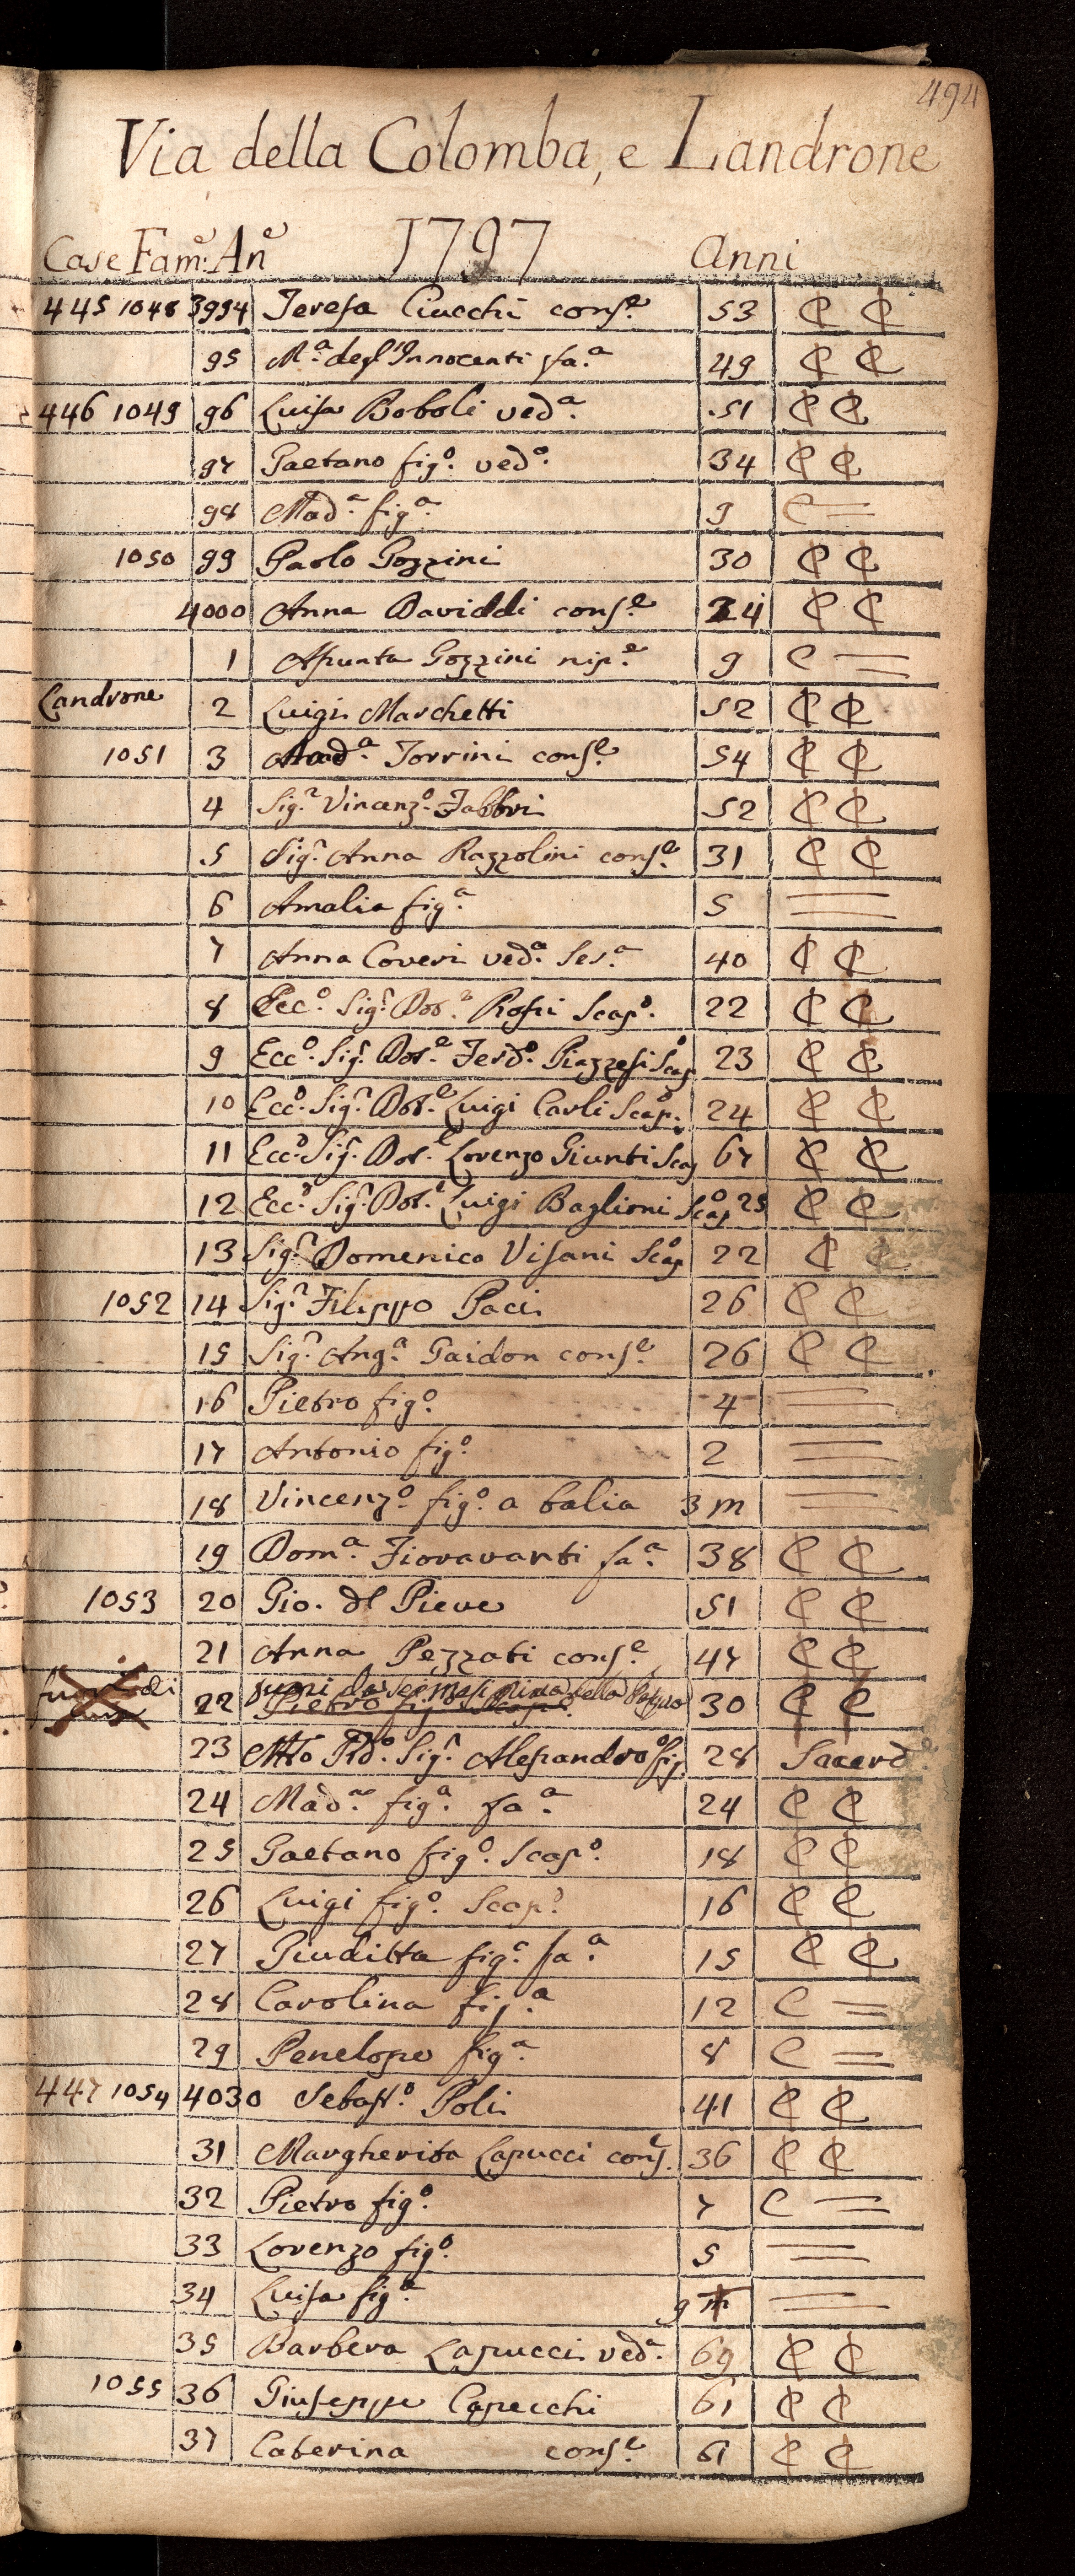 494
Via della Colomba, e Landrone
Case Fam.e An.e 1797 Anni
445 1048 3994 Teresa Ciucchi cons.e 53 C C
95 M.a degl'Innocenti fa.a 49 C C
446 1049 96 Luisa Boboli ved.a 51 C C
97 Gaetano fig.o ved.o 34 C C
98 Mad.a fig.a 9 C =
1050 99 Paolo Gozzini 30 C C
4000 Anna Daviddi cons.e 24 C C
1 Assunta Gozzini nip.e 9 C =
Landrone 2 Luigi Marchetti 52 C C
1051 3 Mad.a Torrini cons.e 54 C C
4 Sig.r Vincenz.o Fabbri 52 C C
5 Sig.a Anna Razzolini cons.e 31 C C
6 Amalia fig.a 5 =
7 Anna Coveri ved.a Ser.a 40 C C
8 Ecc.o Sig.r Dot.e Rossi Scap.o 22 C C
9 Ecc.o Sig.r Dot.e Ferd.o Piazzesi Scap.o 23 C C
10 Ecc.o Sig.r Dot.e Luigi Carli Scap.o 24 C C
11 Ecc.o Sig.r Dot.e Lorenzo Giunti Scap 67 C C
12 Ecc.o Sig.r Dot.e Luigi Baglioni Scap.o 25 C C
13 Sig.r Domenico Visani Scap.o 22 C C
1052 14 Sig.r Filippo Paci 26 C C
15 Sig.a Ang.a Gaidon cons.e 26 C C
16 Pietro fig.o 4 =
17 Antonio fig.o 2 =
18 Vincenz.o fig.o a balia 3 m =
19 Dom.a Fioravanti fa.a 38 C C
1053 20 Gio. del Pieve 51 C C
21 Anna Pezzati cons.e 47 C C
fuori di
22 fuori da sei mesi prima della Pasqua 30 C C
Pietro fig.o Scap.o
23 M.to R.do Sig.r Alessandro fig.o 28 Sacerd.e
24 Mad.a fig.a fa.a 24 C C
25 Gaetano fig.o Scap.o 18 C C
26 Luigi fig.o Scap.o 16 C C
27 Giuditta fig.a fa.a 15 C C
28 Carolina fig.a 12 C =
29 Penelope fig.a 8 C =
447 1054 4030 Sebast.o Poli 41 C C
31 Margherita Lapucci cons.e 36 C C
32 Pietro fig.o 7 C =
33 Lorenzo fig.o 5 =
34 Luisa fig.a 9 m =
35 Barbera Lapucci ved.a 69 C C
1055 36 Giuseppe Capecchi 61 C C
37 Caterina cons.e 61 C C